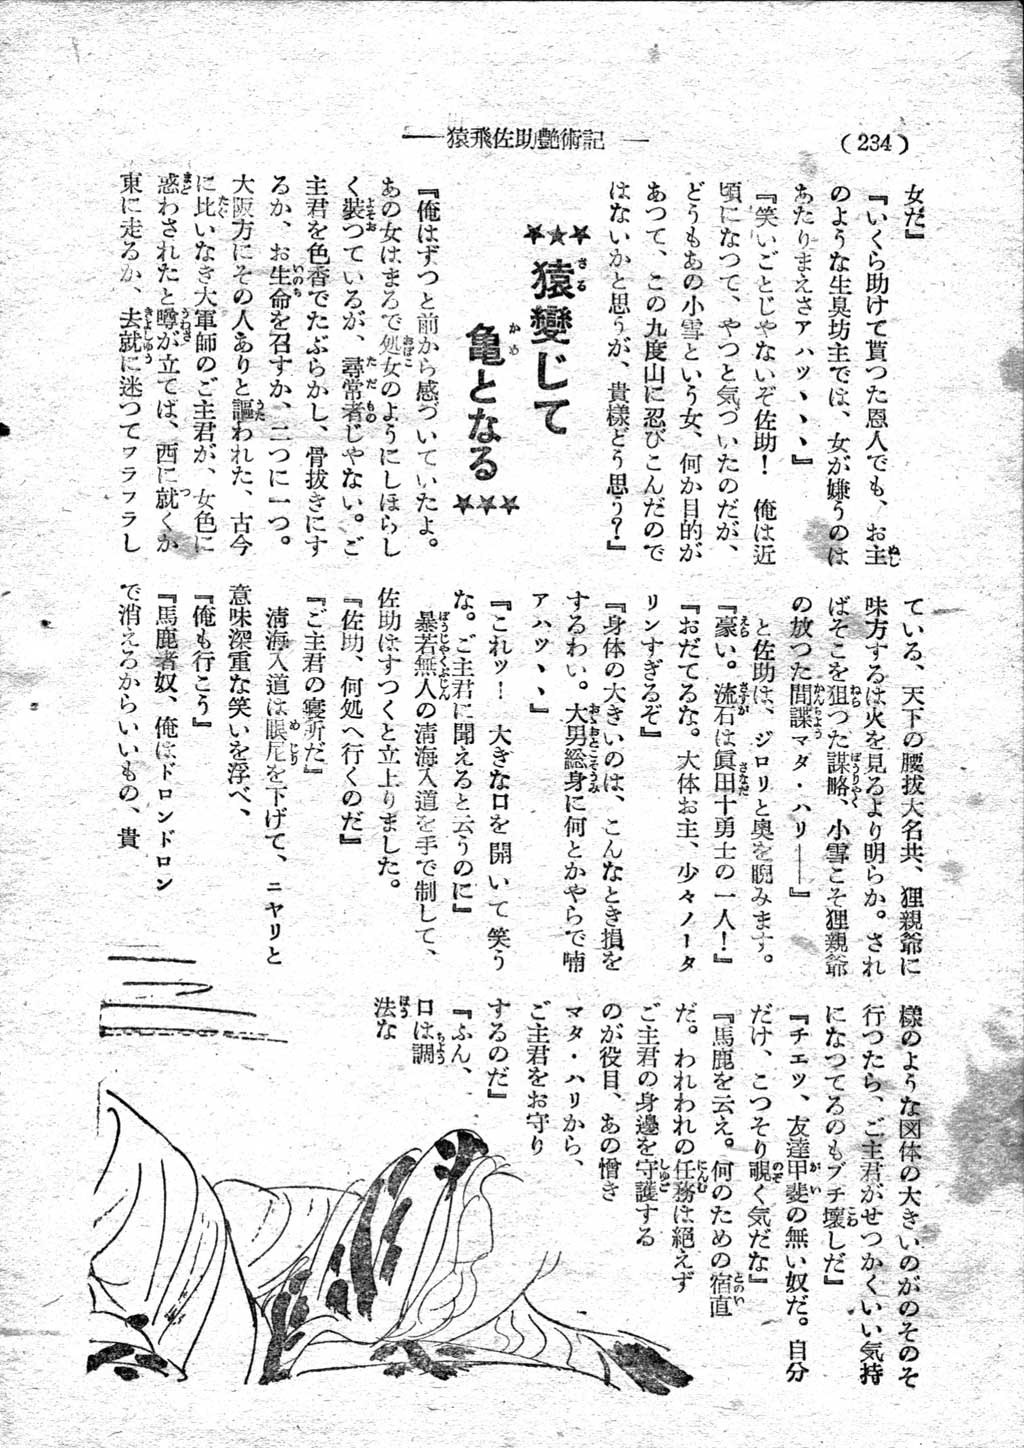 (234)
猿飛佐助艶術記
女だ』
『いくら助けて貰つた恩人でも、お主
のような生臭坊主では、女が嫌うのは
あたりまえさアハッ、、、』
『笑いごとじやないぞ佐助！　俺は近
頃になつて、やつと気づいたのだが、
どうもあの小雪という女、何か目的が
あつて、この九度山に忍びこんだので
はないかと思うが、貴様どう思う？』
★★★猿變じて
亀となる★★★
『俺はずつと前から感づいていたよ。
あの女はまるで処女のようにしほらし
く装つているが、尋常者じやない。ご
主君を色香でたぶらかし、骨抜きにす
るか、お生命を召すか、二つに一つ。
大阪方にその人ありと謳われた、古今
に比いなき大軍師のご主君が、女色に
惑わされたと噂が立ては、西に就くか
東に走るか、去就に迷つてフラフラし
ている、天下の腰抜大名共、狸親爺に
味方するは火を見るより明らか。され
ばそこを狙つた謀略、小雪こそ狸親爺
の放つた間諜マダ・ハリ――』
と佐助は、ジロリと奥を睨みます。
『豪い。流石は眞田十勇士の一人！』
『おだてるな。大体お主、少々ノータ
リンすぎるぞ』
『身体の大きいのは、こんなとき損を
するわい。大男総身に何とかやらで喃
アハッ、、、』
『これッ！　大きな口を開いて笑う
な。ご主君に聞えると云うのに』
暴若無人の清海入道を手で制して、
佐助はすつくと立上りました。
『佐助、何処へ行くのだ』
『ご主君の寝所だ』
清海入道は眼尻を下げて、ニヤリと
意味深重な笑いを浮べ、
『俺も行こう』
『馬鹿者奴、俺はドロンドロン
で消えるからいいもの、貴
様のような図体の大きいのがのそのそ
行つたら、ご主君がせつかくいい気持
になつてるのもブチ壊しだ』
『チエッ、友達甲斐の無い奴だ。自分
だけ、こつそり覗く気だな』
『馬鹿を云え。何のための宿直
だ。われわれの任務は絶えず
ご主君の身邊を守護する
のが役目、あの憎き
マタ・ハリから、
ご主君をお守り
するのだ』
『ふん、
口は調
法な